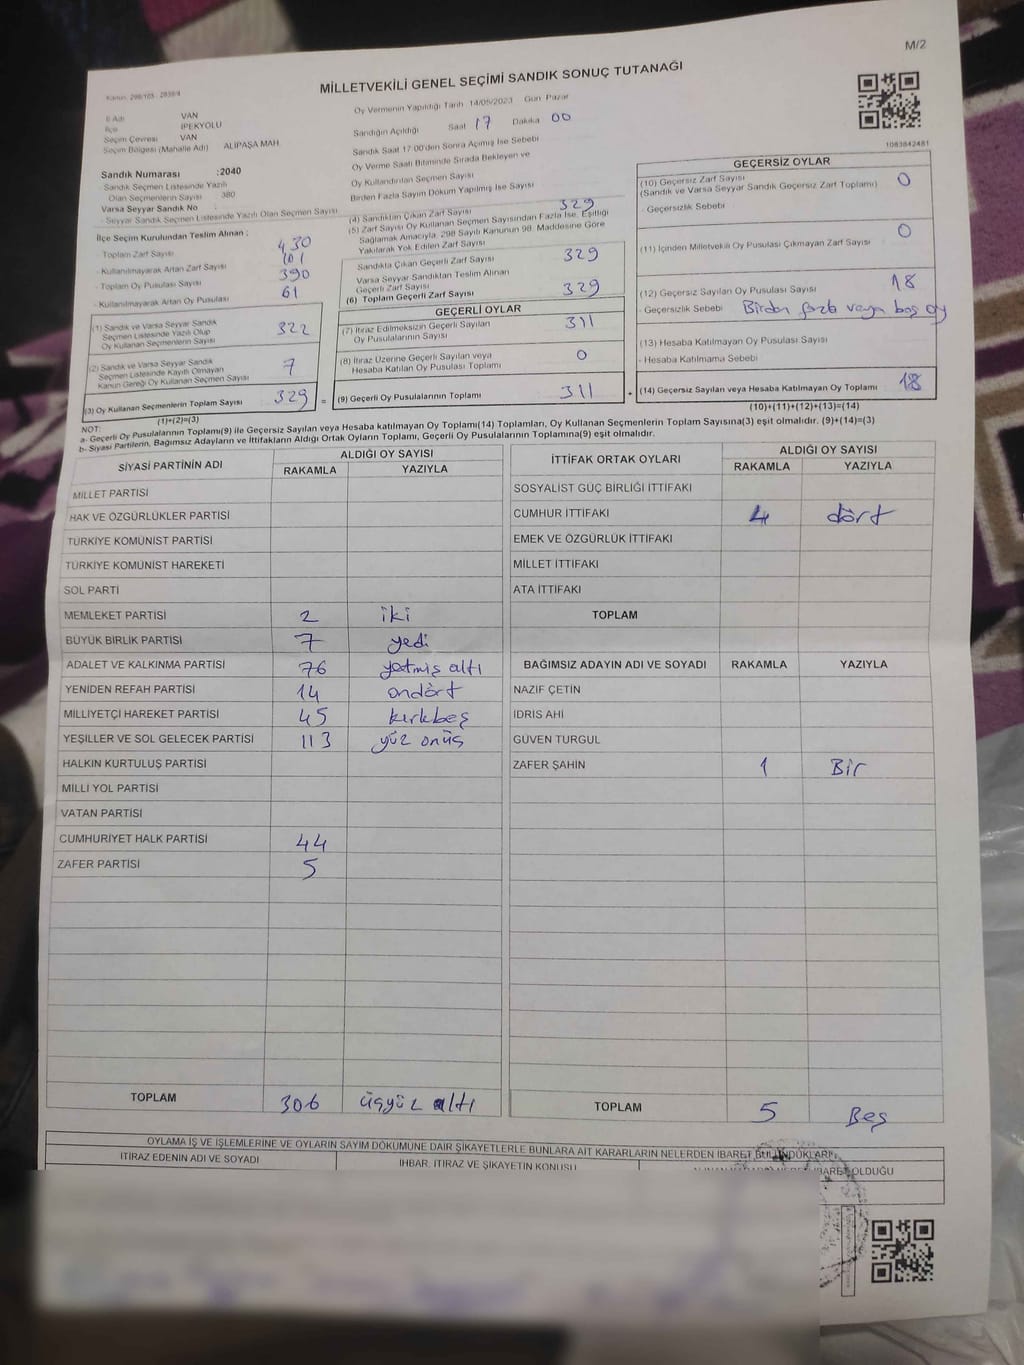 M/2
Kanun: 298/105 - 2839/4
MİLLETVEKİLİ GENEL SEÇİMİ SANDIK SONUÇ TUTANAĞI
İl Adı VAN
İlçe İPEKYOLU
Seçim Çevresi VAN
Seçim Bölgesi (Mahalle Adı) ALİPAŞA MAH.
Sandık Numarası :2040
- Sandık Seçmen Listesinde Yazılı
Olan Seçmenlerin Sayısı 380
Varsa Seyyar Sandık No :
- Seyyar Sandık Seçmen Listesinde Yazılı Olan Seçmen Sayısı
İlçe Seçim Kurulundan Teslim Alınan :
- Toplam Zarf Sayısı 430
- Kullanılmayarak Artan Zarf Sayısı 101
- Toplam Oy Pusulası Sayısı 390
- Kullanılmayarak Artan Oy Pusulası 61
(1) Sandık ve Varsa Seyyar Sandık
Seçmen Listesinde Yazılı Olup
Oy Kullanan Seçmenlerin Sayısı 322
(2) Sandık ve Varsa Seyyar Sandık
Seçmen Listesinde Kayıtlı Olmayan
Kanun Gereği Oy Kullanan Seçmen Sayısı 7
(3) Oy Kullanan Seçmenlerin Toplam Sayısı 329 =
(1)+(2)=(3)
Oy Vermenin Yapıldığı Tarih 14/05/2023 Gün Pazar
Sandığın Açıldığı Saat 17 Dakika 00
Sandık Saat 17:00'den Sonra Açılmış İse Sebebi
Oy Verme Saati Bitiminde Sırada Bekleyen ve
Oy Kullandırılan Seçmen Sayısı
Birden Fazla Sayım Döküm Yapılmış İse Sayısı
(4) Sandıktan Çıkan Zarf Sayısı 329
(5) Zarf Sayısı Oy Kullanan Seçmen Sayısından Fazla İse, Eşitliği
Sağlamak Amacıyla, 298 Sayılı Kanunun 98. Maddesine Göre
Yakılarak Yok Edilen Zarf Sayısı
Sandıkta Çıkan Geçerli Zarf Sayısı 329
Varsa Seyyar Sandıktan Teslim Alınan
Geçerli Zarf Sayısı
(6) Toplam Geçerli Zarf Sayısı 329
GEÇERLİ OYLAR
(7) İtiraz Edilmeksizin Geçerli Sayılan
Oy Pusulalarının Sayısı 311
(8) İtiraz Üzerine Geçerli Sayılan veya
Hesaba Katılan Oy Pusulası Toplamı 0
(9) Geçerli Oy Pusulalarının Toplamı 311 +
1083842481
GEÇERSİZ OYLAR
(10) Geçersiz Zarf Sayısı
(Sandık ve Varsa Seyyar Sandık Geçersiz Zarf Toplamı) 0
- Geçersizlik Sebebi
(11) İçinden Milletvekili Oy Pusulası Çıkmayan Zarf Sayısı 0
(12) Geçersiz Sayılan Oy Pusulası Sayısı 18
- Geçersizlik Sebebi Birden fazla veya boş oy
(13) Hesaba Katılmayan Oy Pusulası Sayısı
- Hesaba Katılmama Sebebi
(14) Geçersiz Sayılan veya Hesaba Katılmayan Oy Toplamı 18
(10)+(11)+(12)+(13)=(14)
NOT:
a- Geçerli Oy Pusulalarının Toplamı(9) ile Geçersiz Sayılan veya Hesaba katılmayan Oy Toplamı(14) Toplamları, Oy Kullanan Seçmenlerin Toplam Sayısına(3) eşit olmalıdır. (9)+(14)=(3)
b- Siyasi Partilerin, Bağımsız Adayların ve İttifakların Aldığı Ortak Oyların Toplamı, Geçerli Oy Pusulalarının Toplamına(9) eşit olmalıdır.
SİYASİ PARTİNİN ADI ALDIĞI OY SAYISI
RAKAMLA YAZIYLA
MİLLET PARTİSİ
HAK VE ÖZGÜRLÜKLER PARTİSİ
TÜRKİYE KOMÜNİST PARTİSİ
TÜRKİYE KOMÜNİST HAREKETİ
SOL PARTİ
MEMLEKET PARTİSİ 2 iki
BÜYÜK BİRLİK PARTİSİ 7 yedi
ADALET VE KALKINMA PARTİSİ 76 yetmiş altı
YENİDEN REFAH PARTİSİ 14 ondört
MİLLİYETÇİ HAREKET PARTİSİ 45 kırkbeş
YEŞİLLER VE SOL GELECEK PARTİSİ 113 yüz onüç
HALKIN KURTULUŞ PARTİSİ
MİLLİ YOL PARTİSİ
VATAN PARTİSİ
CUMHURİYET HALK PARTİSİ 44
ZAFER PARTİSİ 5
TOPLAM 306 üçyüz altı
İTTİFAK ORTAK OYLARI ALDIĞI OY SAYISI
RAKAMLA YAZIYLA
SOSYALİST GÜÇ BİRLİĞİ İTTİFAKI
CUMHUR İTTİFAKI 4 dört
EMEK VE ÖZGÜRLÜK İTTİFAKI
MİLLET İTTİFAKI
ATA İTTİFAKI
TOPLAM
BAĞIMSIZ ADAYIN ADI VE SOYADI RAKAMLA YAZIYLA
NAZİF ÇETİN
İDRİS AHİ
GÜVEN TURGUL
ZAFER ŞAHİN 1 Bir
TOPLAM 5 Beş
OYLAMA İŞ VE İŞLEMLERİNE VE OYLARIN SAYIM DÖKÜMÜNE DAİR ŞİKAYETLERLE BUNLARA AİT KARARLARIN NELERDEN İBARET BULUNDUKLARI
İTİRAZ EDENİN ADI VE SOYADI İHBAR, İTİRAZ VE ŞİKAYETİN KONUSU İBARET OLDUĞU